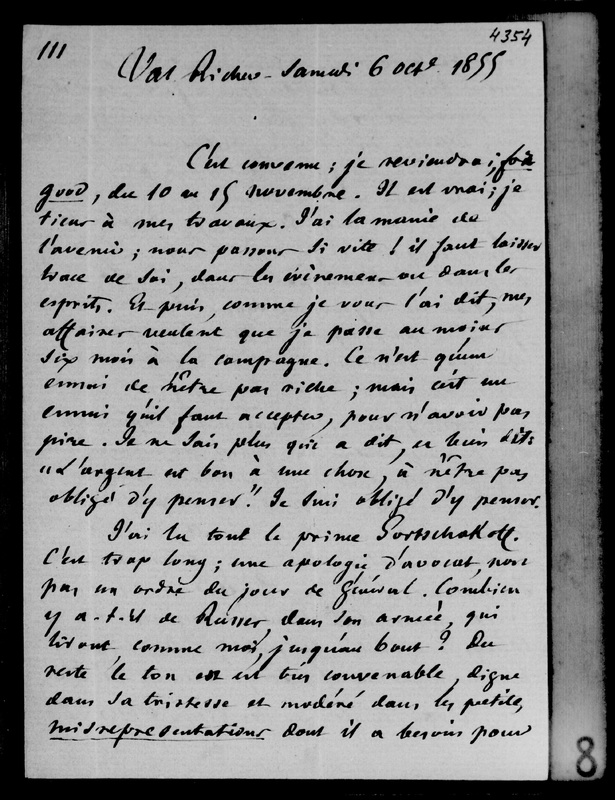 111
4354
Val Richer - Samedi 6 Octe 1855
C'est convenu ; je reviendrai, for
good, du 10 au 15 novembre. Il est vrai ; je
tiens à mes travaux. J'ai la manie de
l'avenir ; nous passons si vite ! il faut laisser
trace de soi, dans les évènemens ou dans les
esprits. Et puis, comme je vous l'ai dit, mes
affaires veulent que je passe au moins
six mois à la campagne. Ce n'est qu'un
ennui de n'être pas riche ; mais c'est un
ennui qu'il faut accepter, pour n'avoir pas
pire. Je ne sais plus qui a dit, et bien dit :
"L'argent est bon à une chose, à n'être pas
obligé d'y penser." Je suis obligé d'y penser.
J'ai lu tout le prince Gortschakoff.
C'est trop long ; une apologie d'avocat, non
pas un ordre du jour de Général. Combien
y a-t-il de Russes, dans son armée, qui
liront, comme moi, jusqu'au bout ? Du
reste le ton est très convenable, digne
dans sa tristesse et modéré dans les petites
misrepresentations dont il a besoin pour
8